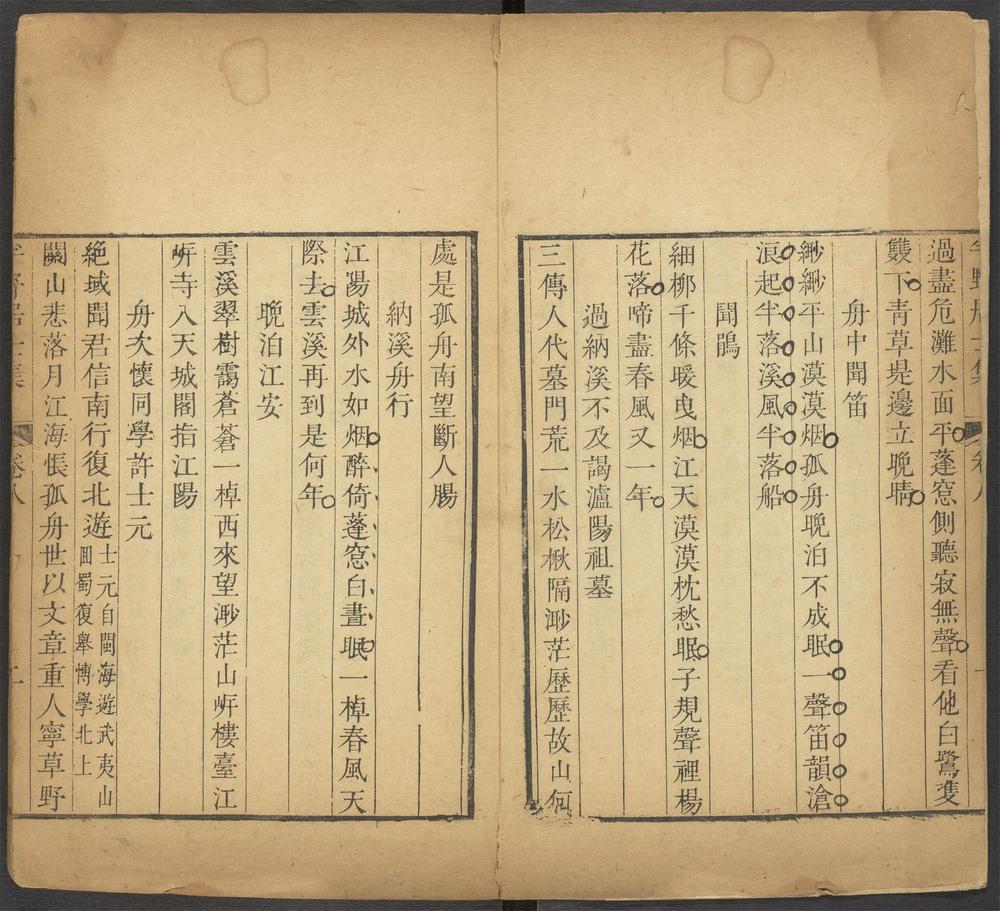 過盡危灘水面平蓬窓側聽寂無聲看他白鷺隻
䨇下青草堤邊立晚晴
舟中聞笛
緲緲平山漠漠烟孤舟晚泊不成眠一聲笛韻滄
浪起半落溪風半落船
聞鵑
細栁千條暖曳烟江天漠漠枕愁眠子規聲裡楊
花落啼盡春風又一年
過納溪不及謁瀘陽祖墓
三傳人代墓門荒一水松楸隔渺茫歷歷故山何
處是孤舟南望斷人腸
納溪舟行
江陽城外水如烟醉倚蓬窓白晝眠一棹春風天
際去雲溪再到是何年
晚泊江安
雲溪翠樹靄蒼蒼一棹西來望渺茫山㟁樓臺江
㟁寺入天城閣指江陽
舟次懷同學許士元
絶域聞君信南行復北遊士元自閩海遊武夷山
囬蜀復舉博學北上
關山悲落月江海悵孤舟世以文章重人寧草野
卷八